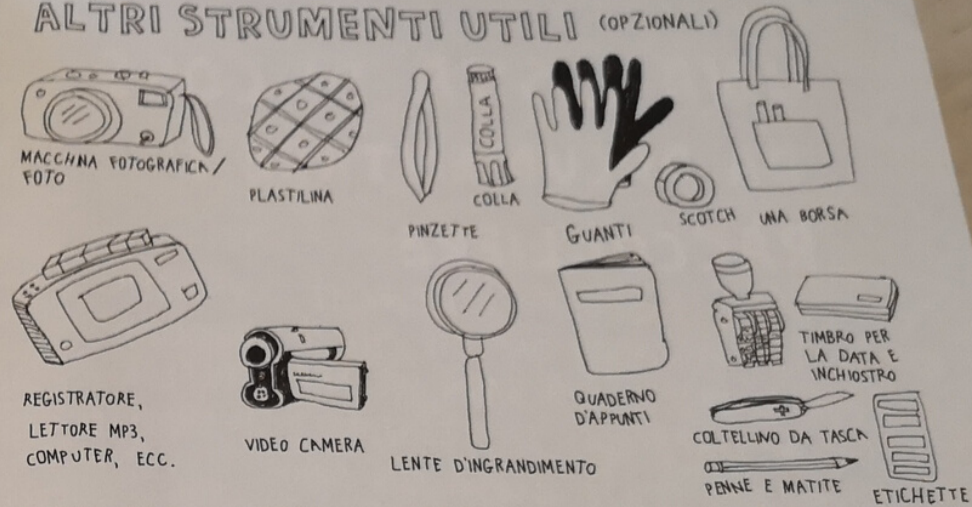 ALTRI STRUMENTI UTILI (OPZIONALI)
MACCHINA FOTOGRAFICA/
FOTO
PLASTILINA
PINZETTE
COLLA
COLLA
GUANTI
SCOTCH
UNA BORSA
REGISTRATORE,
LETTORE MP3,
COMPUTER, ECC.
VIDEO CAMERA
LENTE D'INGRANDIMENTO
QUADERNO
D'APPUNTI
TIMBRO PER
LA DATA E
INCHIOSTRO
COLTELLINO DA TASCA
PENNE E MATITE
ETICHETTE